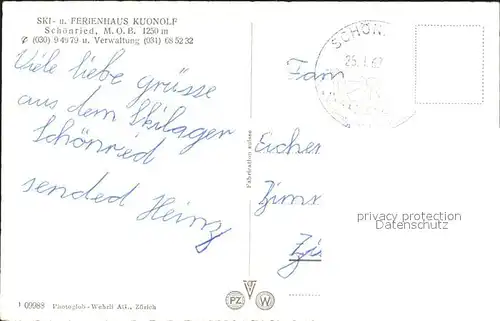 SKI- u. FERIENHAUS KUONOLF
Schönried, M. O. B. 1250 m
(030) 9 49 79 u. Verwaltung (031) 68 52 32
Viele liebe grüsse
aus dem Skilager
Schönried
sended Heinz
SCHÖN
25. I. 67
Fam
Eicher
Zimr
Zü
privacy protection
Datenschutz
Fabrication suisse
PZ W
I 09988 Photoglob-Wehrli AG., Zürich